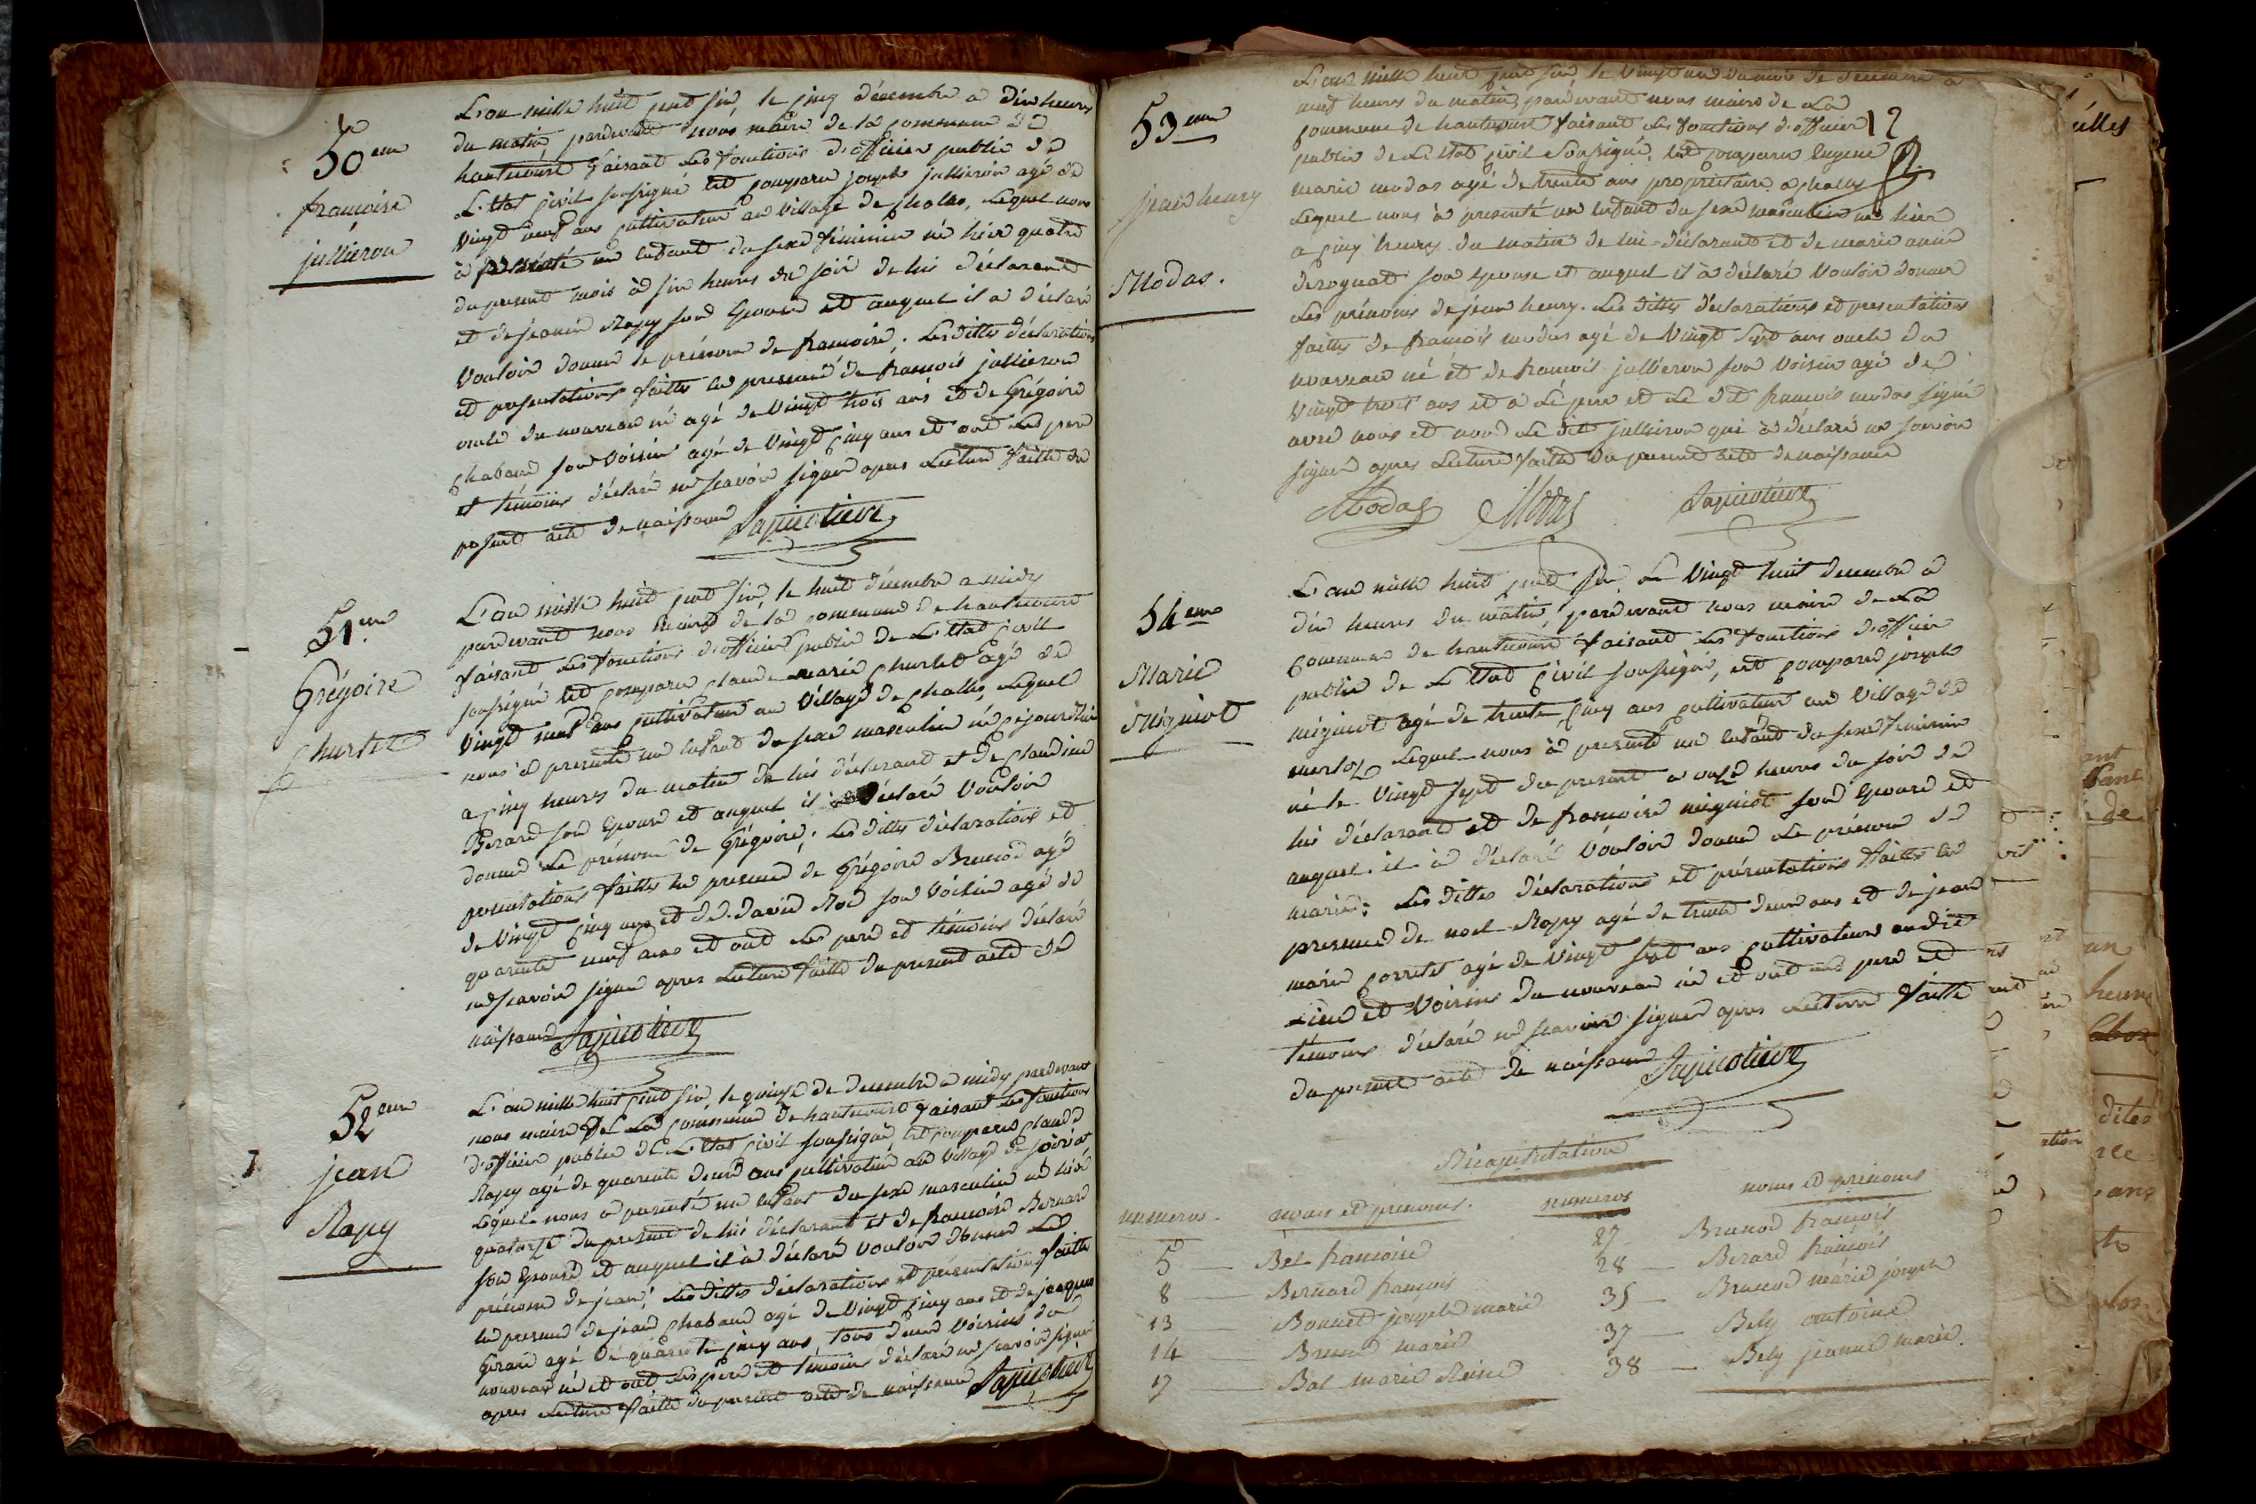 50eme
francoise
jullieron
L'an mille huit cent six, le cinq décembre a dix heures
du matin, pardevant nous maire de la commune de
hautecourt faisant les fonctions d'officier public de
L'Etat civil soussigné est comparu joseph jullieron agé de
vingt neuf ans cultivateur au village de chales, lequel nous
à présenté un enfant du sexe féminin né hier quatre
du present mois à six heures du soir de lui déclarant
et de jeanne Rapy son Epouse et auquel il a déclaré
vouloir donner le prénom de francoise. Les dittes déclarations
et presentations faittes en presence de francois jullieron
oncle du nouveau né agé de vingt trois ans et de Grégoire
chaband son voisin agé de vingt cinq ans et ont les pere
et témoins déclaré ne scavoir signer apres lecture faitte du
present acte de naissance
51eme
Grégoire
Churlet
L'an mille huit cent six, le huit décembre a midy
pardevant nous maire de la commune de hautecourt
faisant les fonctions d'officier public de L'Etat civil
soussigné est comparu claude marie churlet agé de
vingt neuf ans cultivateur au village de challes, lequel
nous à presenté un enfant du sexe masculin né cejourd'hui
a cinq heures du matin de lui déclarant et de claudine
Berard son Epouse et auquel il a déclaré vouloir
donner le prénom de Grégoire; Les dittes déclarations et
presentations faittes en presence de Grégoire Brunod agé
de vingt cinq ans et de david Rod son voisin agé de
quarente neuf ans et ont les pere et témoins déclaré
ne scavoir signer apres lecture faitte du present acte de
naissance
52eme
jean
Rapy
L'an mille huit cent six, le quinze de decembre a midy pardevant
nous maire de la commune de hautecourt faisant les fonctions
d'officier public de L'Etat civil soussigné est comparu claude
Rapy agé de quarente deux ans cultivateur au village de
Lequel nous a presenté un enfant du sexe masculin né hier
quatorze du present de lui déclarant et de francoise Bernard
son Epouse et auquel il à déclaré vouloir donner le
prénom de jean; Les dittes déclarations et presentations faittes
en presence de jean chaband agé de vingt cinq ans et de jacques
Gerard agé de quarente cinq ans tous deux voisins du
nouveau né et ont les pere et témoins déclaré ne scavoir signer
apres lecture faitte du present acte de naissance
12
53eme
jean henry
Modas.
L'an mille huit cent six, le vingt un du mois de decembre a
neuf heures du matin pardevant nous maire de la
commune de hautecourt faisant les fonctions d'officier
public de L'Etat civil soussigné, est comparu Eugene
marie modas agé de trente ans propriétaire a challes
Lequel nous à presenté un enfant du sexe masculin né hier
a cinq heures du matin de lui déclarant et de marie anne
deroguat son epouse et auquel il à déclaré vouloir donner
les prénoms de jean henry. Les dittes déclarations et presentations
faittes de francois modas agé de vingt sept ans oncle du
nouveau né et de francois jullieron son voisin agé de
vingt trois ans et a Le pere et Le dit francois modas signé
avec nous et non Le dit jullieron qui à déclaré ne scavoir
signer apres lecture faitte du present acte de naissance
Modas Modas
54eme
Marie
Migniot
L'an mille huit cent six Le vingt huit decembre à
dix heures du matin, pardevant nous maire de la
commune de hautecourt faisant les fonctions d'officier
public de L'Etat civil soussigné, est comparu joseph
migniot agé de trente cinq ans cultivateur au village de
Lequel nous à presenté un enfant du sexe feminin
né le vingt sept du present a onze heures du soir de
lui déclarant et de francoise migniot son Epouse et
auquel il à déclaré vouloir donner le prénom de
marie: Les dittes déclarations et présentations faittes en
presence de noel Rapy agé de trente deux ans et de jean
marie corretet agé de vingt sept ans cultivateurs audit
Lieu et voisins du nouveau né et ont les pere et
témoins déclaré ne scavoir signer apres lecture faitte
du present acte de naissance
Récapitulation
numeros. noms et prenoms. numeros noms et prénoms
5 Bal francoise 27 Brunod francois
8 Bernard francois 28 Berard francois
13 Bonnet joseph marie 35 Brunod marie joseph
14 Brunod marie 37 Bely antoine
17 Bal marie Reine 38 Bely jeanne marie.